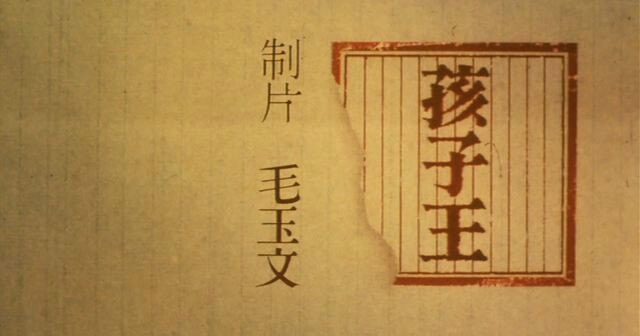 孩子王
制片 毛玉文